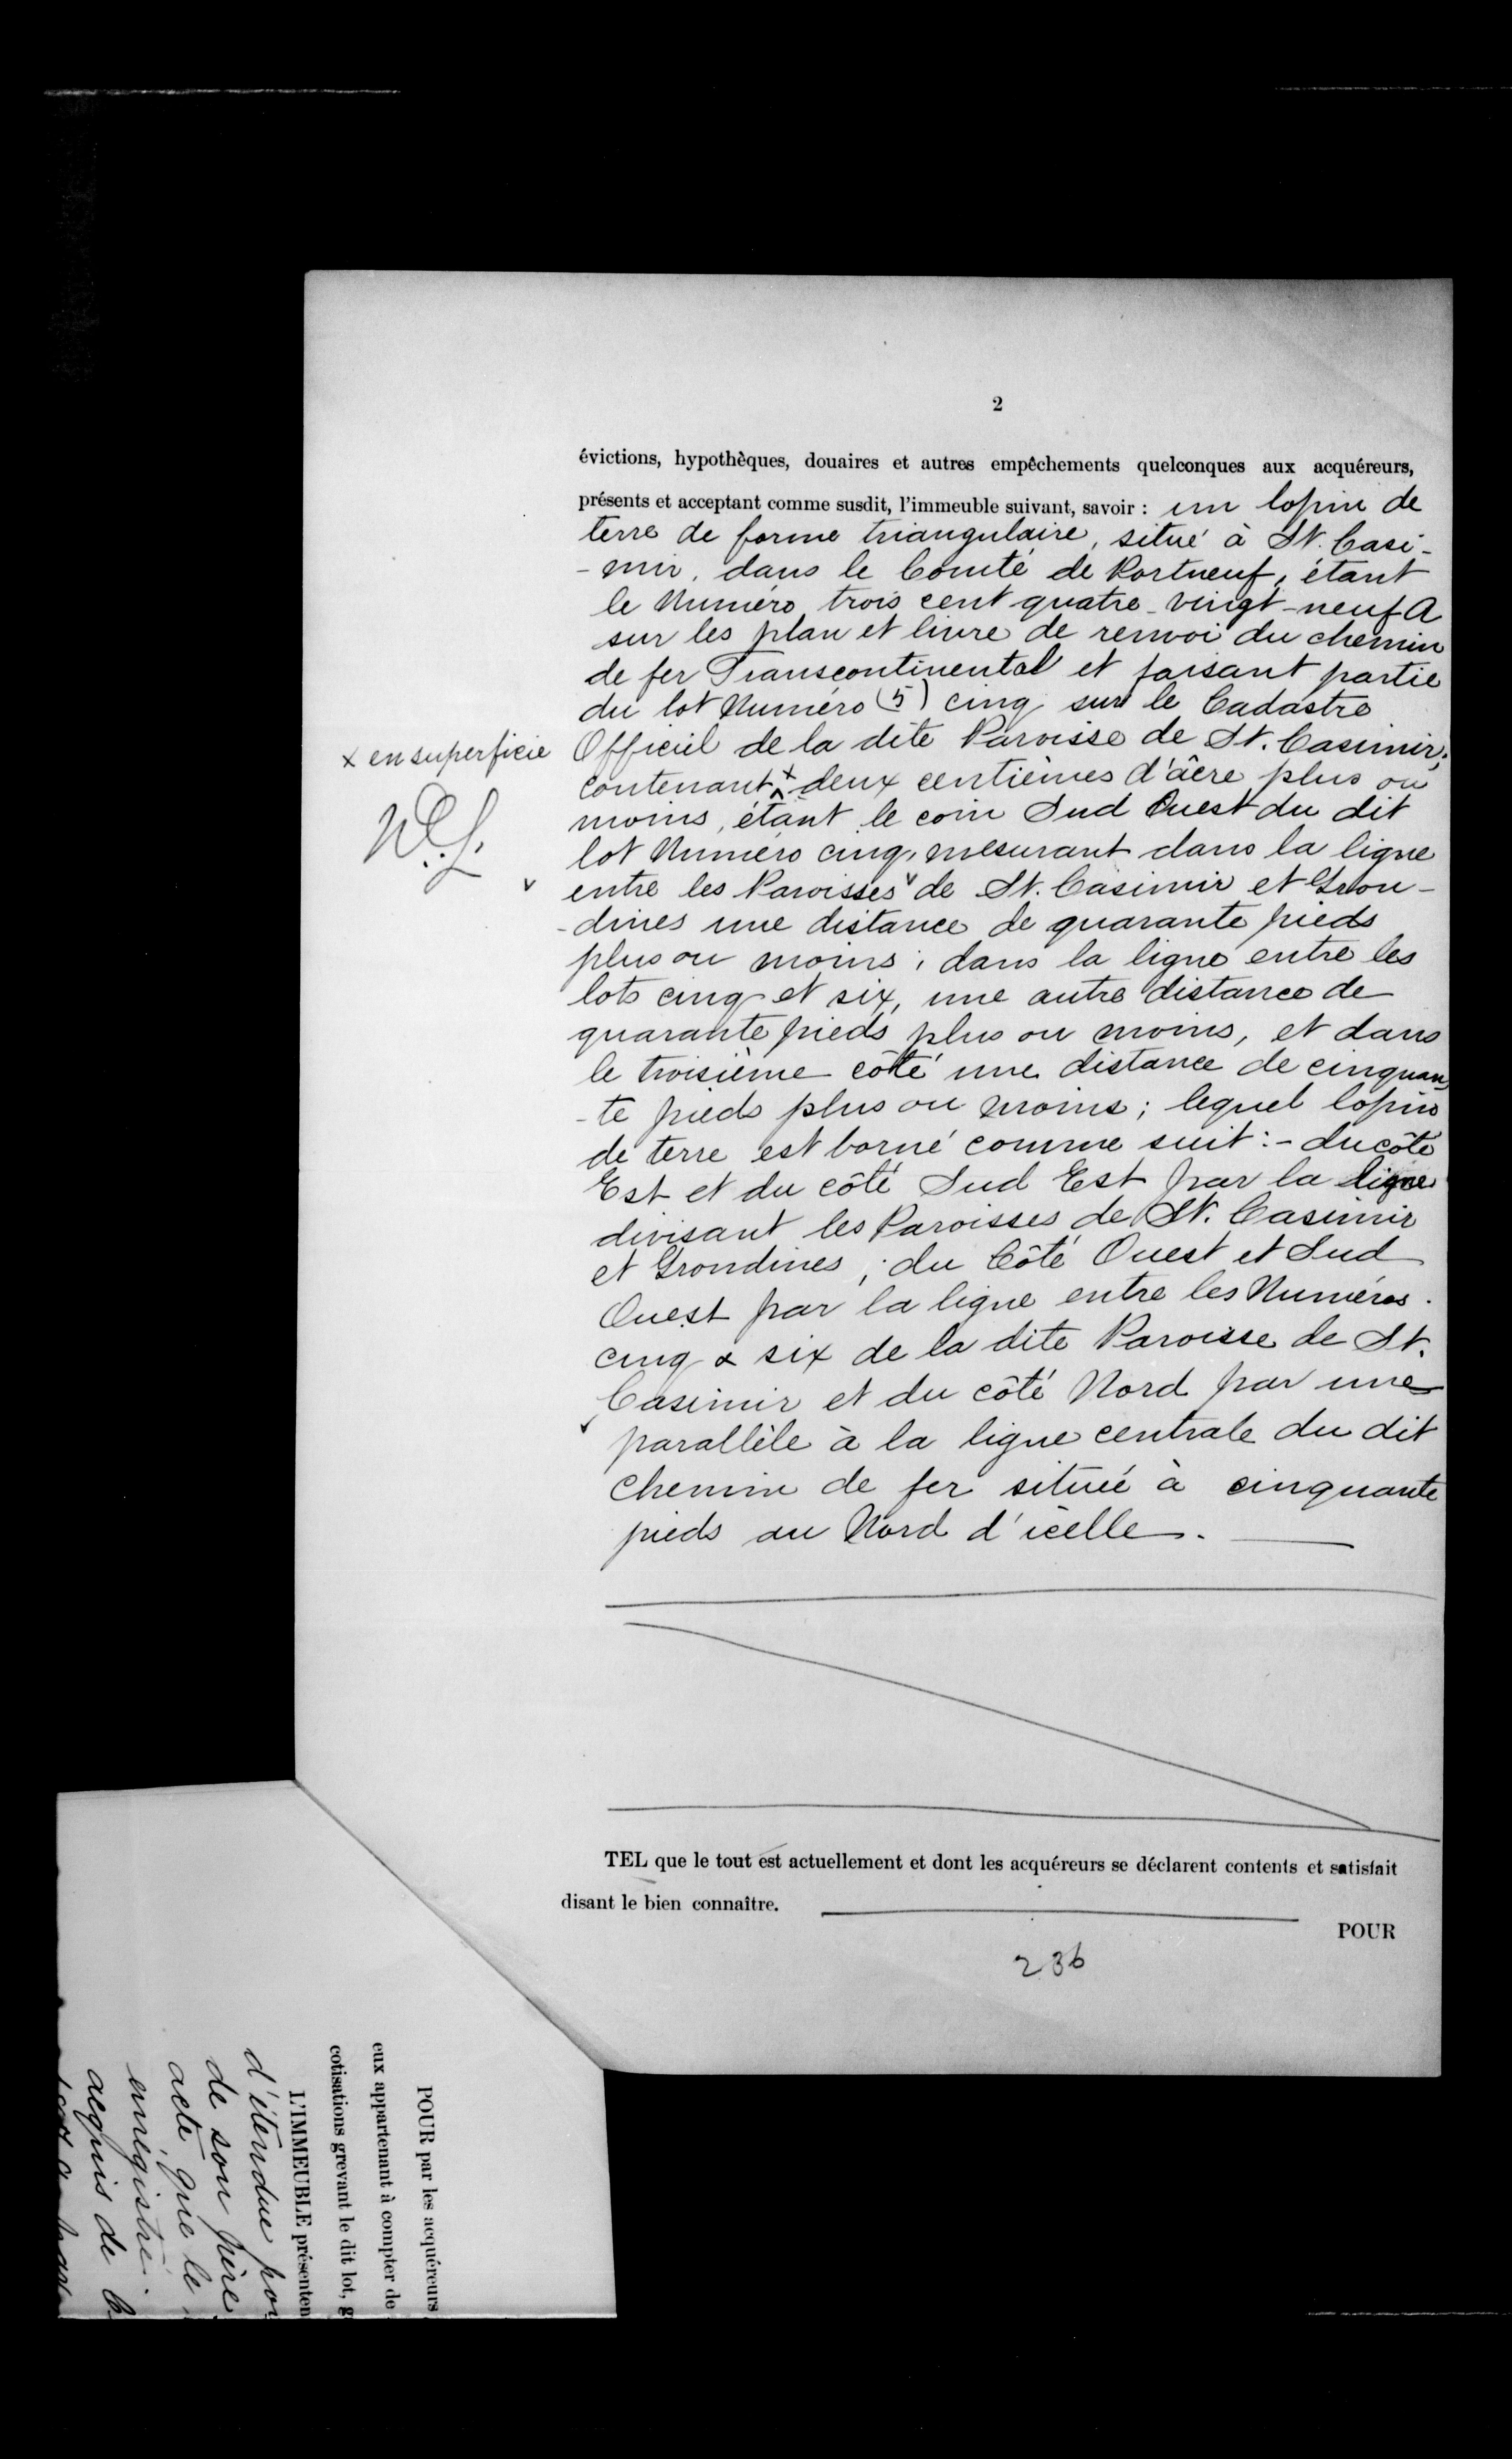 2
évictions, hypothèques, douaires et autres empêchements quelconques aux acquéreurs,
présents et acceptant comme susdit, l'immeuble suivant, savoir : un lopin de
terre de forme triangulaire, situé à St. Casi-
-mir, dans le Comté de Portneuf, étant
le Numéro trois cent quatre-vingt-neuf A
sur les plan et livre de renvoi du chemin
de fer Transcontinental et faisant partie
du lot Numéro (5) cinq sur le Cadastre
x en superficie
Officiel de la dite Paroisse de St. Casimir;
contenant x deux centièmes d'âcre plus ou
moins, étant le coin Sud Ouest du dit
lot Numéro cinq, mesurant dans la ligne
entre les Paroisses de St. Casimir et Gron-
-dines une distance de quarante pieds
plus ou moins; dans la ligne entre les
lots cinq et six, une autre distance de
quarante pieds plus ou moins, et dans
le troisième côté une distance de cinquan
-te pieds plus ou moins; lequel lopin
de terre est borné comme suit:- du côté
Est et du côté Sud Est par la ligne
divisant les Paroisses de St. Casimir
et Grondines; du Côté Ouest et Sud
Ouest par la ligne entre les Numéros
cinq & six de la dite Paroisse de St.
Casimir et du côté Nord par une
parallèle à la ligne centrale du dit
Chemin de fer située à cinquante
pieds au Nord d'icelle.
TEL que le tout est actuellement et dont les acquéreurs se déclarent contents et satisfait
disant le bien connaître.
POUR
236
POUR par les acquéreurs
eux appartenant à compter de
cotisations grevant le dit lot, g
L'IMMEUBLE présenten
d'étendue pou
de son père
acte que le
enrégistré.
acquis de